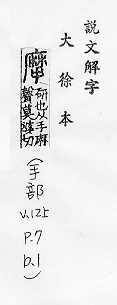 說文解字
大徐本
摩
研也从手麻
聲莫婆切
(手部
V.12上
P.7
b.1)